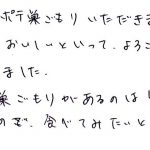 ポテ巣ごもりいただきま
おいしいといって、よろこ
ました。
巣ごもりがあるのは
のぞ、食べてみたいと